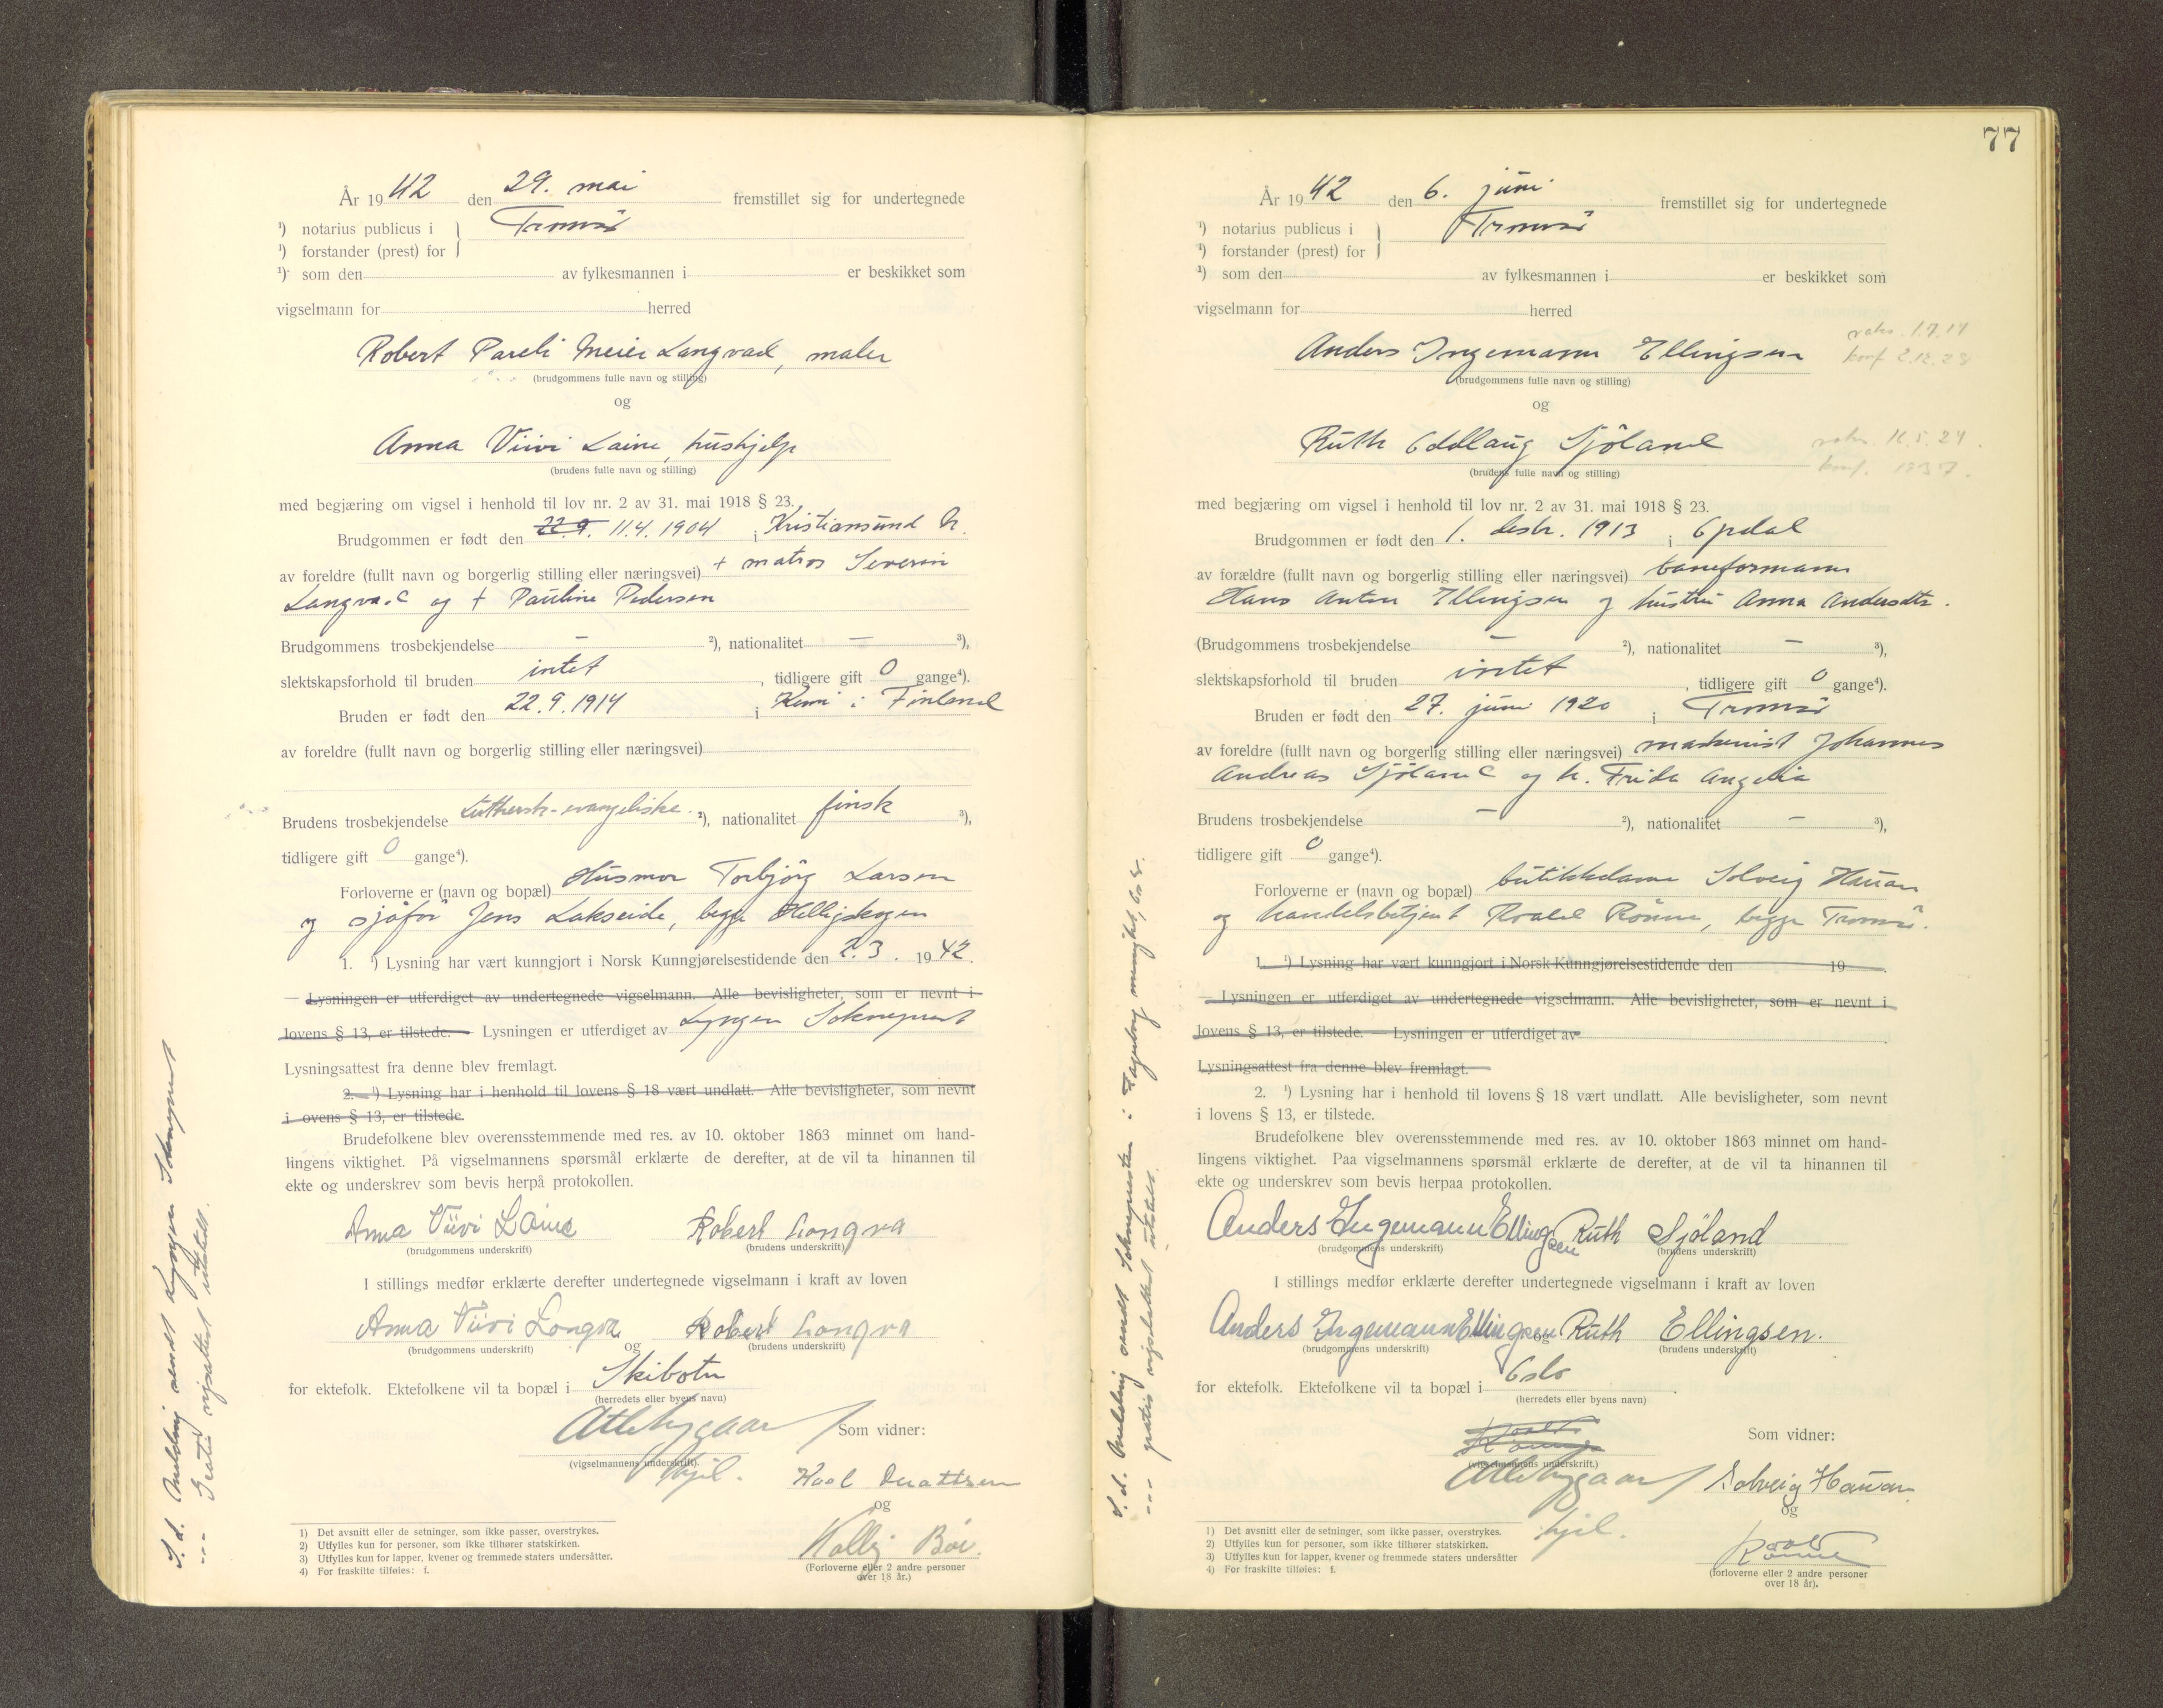 År 1942 den 29. mai fremstillet sig for undertegnede
¹) notarius publicus i } Tromsö
¹) forstander (prest) for
¹) som den av fylkesmannen i er beskikket som
vigselmann for herred
Robert Pareli Meier Langvad, maler
(brudgommens fulle navn og stilling)
og
Anna Viivi Laine, hushjelp
(brudens fulle navn og stilling)
med begjæring om vigsel i henhold til lov nr. 2 av 31. mai 1918 § 23.
Brudgommen er født den 22.9. 11.4.1904 i Kristiansund N.
av foreldre (fullt navn og borgerlig stilling eller næringsvei) + matros Severin
og + Pauline Pedersen
Brudgommens trosbekjendelse – ²), nationalitet – ³),
slektskapsforhold til bruden intet, tidligere gift 0 gange⁴).
Bruden er født den 22.9.1914 i Kemi i Finland
av foreldre (fullt navn og borgerlig stilling eller næringsvei)
Brudens trosbekjendelse Luthersk-evangeliske. ²), nationalitet finsk ³),
tidligere gift 0 gange⁴).
Forloverne er (navn og bopæl) Husmor Torbjörg Larsen
og sjåför Jens Lakseide, begge Helligskogen
1. ¹) Lysning har vært kunngjort i Norsk Kunngjørelsestidende den 2.3. 1942.
— Lysningen er utferdiget av undertegnede vigselmann. Alle bevisligheter, som er nevnt i
lovens § 13, er tilstede. — Lysningen er utferdiget av Lyngen Sokneprest
Lysningsattest fra denne blev fremlagt.
2. ¹) Lysning har i henhold til lovens § 18 vært undlatt. Alle bevisligheter, som nevnt
i ovens § 13, er tilstede.
Brudefolkene blev overensstemmende med res. av 10. oktober 1863 minnet om hand-
lingens viktighet. På vigselmannens spørsmål erklærte de derefter, at de vil ta hinannen til
ekte og underskrev som bevis herpå protokollen.
Anna Viivi Laine Robert Longva
(brudgommens underskrift) (brudens underskrift)
I stillings medfør erklærte derefter undertegnede vigselmann i kraft av loven
Anna Viivi Longva og Robert Longva
(brudgommens underskrift) (brudens underskrift)
for ektefolk. Ektefolkene vil ta bopæl i Skibotn
(herredets eller byens navn)
Som vidner:
(vigselmannens underskrift).
hjil.
og
(Forloverne eller 2 andre personer
over 18 år.)
1) Det avsnitt eller de setninger, som ikke passer, overstrykes.
2) Utfylles kun for personer, som ikke tilhører statskirken.
3) Utfylles kun for lapper, kvener og fremmede staters undersåtter.
4) For fraskilte tilføies: f.
S. d. Melding sendt Lyngen Sokneprest
--- Gratis utstedt.
77
År 1942 den 6. juni fremstillet sig for undertegnede
¹) notarius publicus i } Tromsö
¹) forstander (prest) for
¹) som den av fylkesmannen i er beskikket som
vigselmann for herred
Anders Ingemann Ellingsen
(brudgommens fulle navn og stilling)
og
Ruth Oddlaug Sjöland
(brudens fulle navn og stilling)
med begjæring om vigsel i henhold til lov nr. 2 av 31. mai 1918 § 23.
Brudgommen er født den 1. desbr. 1913 i Opdal
av forældre (fullt navn og borgerlig stilling eller næringsvei) baneformann
Hans Anton Ellingsen og hustru Anna Andersdtr.
(Brudgommens trosbekjendelse – ²), nationalitet – ³),
slektskapsforhold til bruden intet, tidligere gift 0 gange⁴).
Bruden er født den 27. juni 1920 i Tromsö
av foreldre (fullt navn og borgerlig stilling eller næringsvei) maskinist Johannes
Andreas Sjöland og h. Frida
Brudens trosbekjendelse – ²), nationalitet – ³),
tidligere gift 0 gange⁴).
Forloverne er (navn og bopæl) butikkdame Solveig Hauan
og handelsbetjent Roald Rönne, begge Tromsö.
1. ¹) Lysning har vært kunngjort i Norsk Kunngjørelsestidende den 19 .
— Lysningen er utferdiget av undertegnede vigselmann. Alle bevisligheter, som er nevnt i
lovens § 13, er tilstede. — Lysningen er utferdiget av
Lysningsattest fra denne blev fremlagt.
2. ¹) Lysning har i henhold til lovens § 18 vært undlatt. Alle bevisligheter, som nevnt
i lovens § 13, er tilstede.
Brudefolkene blev overensstemmende med res. av 10. oktober 1863 minnet om hand-
lingens viktighet. Paa vigselmannens spørsmål erklærte de derefter, at de vil ta hinannen til
ekte og underskrev som bevis herpaa protokollen.
Anders Ingemann Ellingsen Ruth Sjöland
(brudgommens underskrift) (brudens underskrift)
I stillings medfør erklærte derefter undertegnede vigselmann i kraft av loven
Anders Ingemann Ellingsen og Ruth Ellingsen.
(brudgommens underskrift) (brudens underskrift)
for ektefolk. Ektefolkene vil ta bopæl i Oslo.
(herredets eller byens navn)
Roald
Rönne
Som vidner:
(vigselmannens underskrift.)
Solveig Hauan
hjil.
og
Roald
Rönne
(forloverne eller 2 andre personer
over 18 år).
1) Det avsnitt eller de setninger, som ikke passer, overstrykes.
2) Utfylles kun for personer, som ikke tilhører statskirken.
3) Utfylles kun for lapper, kvener og fremmede staters undersåtter
4) For fraskilte tilføies: f.
S. d. Melding sendt Soknepresten i Fagerborg menighet, Oslo.
--- gratis vigselattest utstedt.